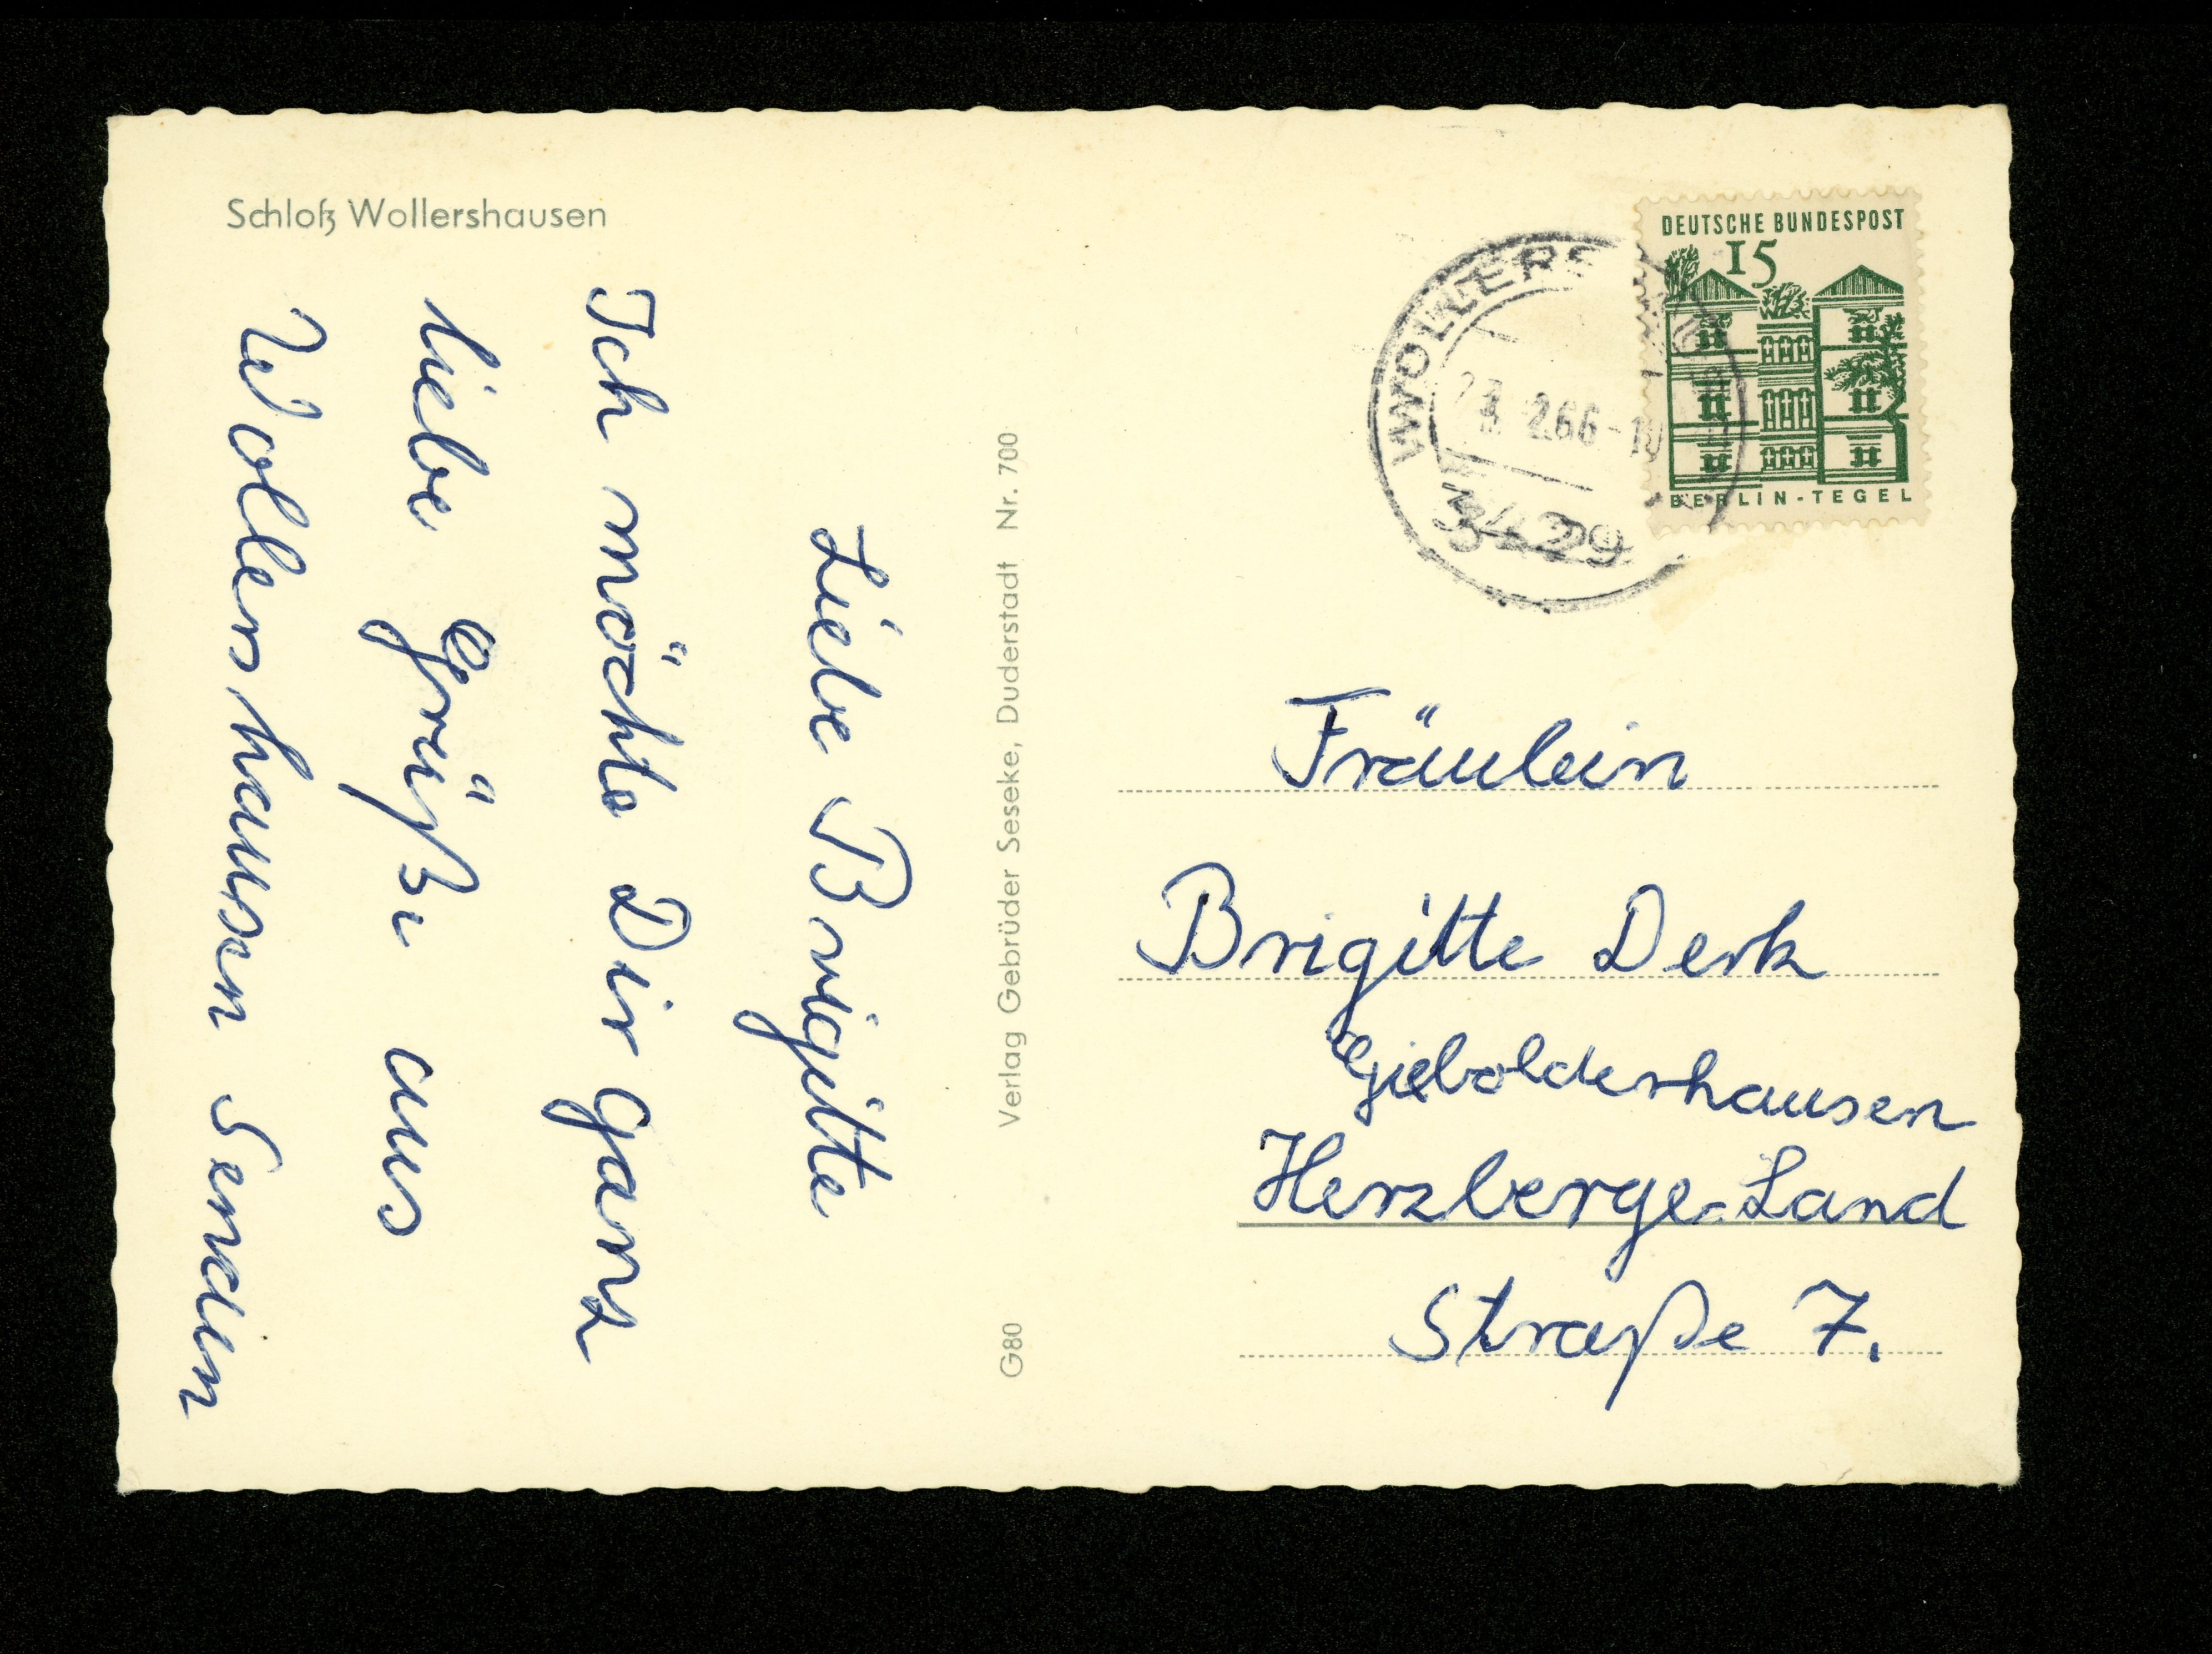 Schloß Wollershausen
Liebe Brigitte
Ich möchte Dir ganz
liebe Grüße aus
Wollershausen senden
Verlag Gebrüder Seseke, Duderstadt Nr. 700
G80
DEUTSCHE BUNDESPOST
15
BERLIN-TEGEL
WOLLERS
2.66-10
3429
Fräulein
Brigitte Derk
Gieboldershausen
Herzberge-Land
Straße 7.